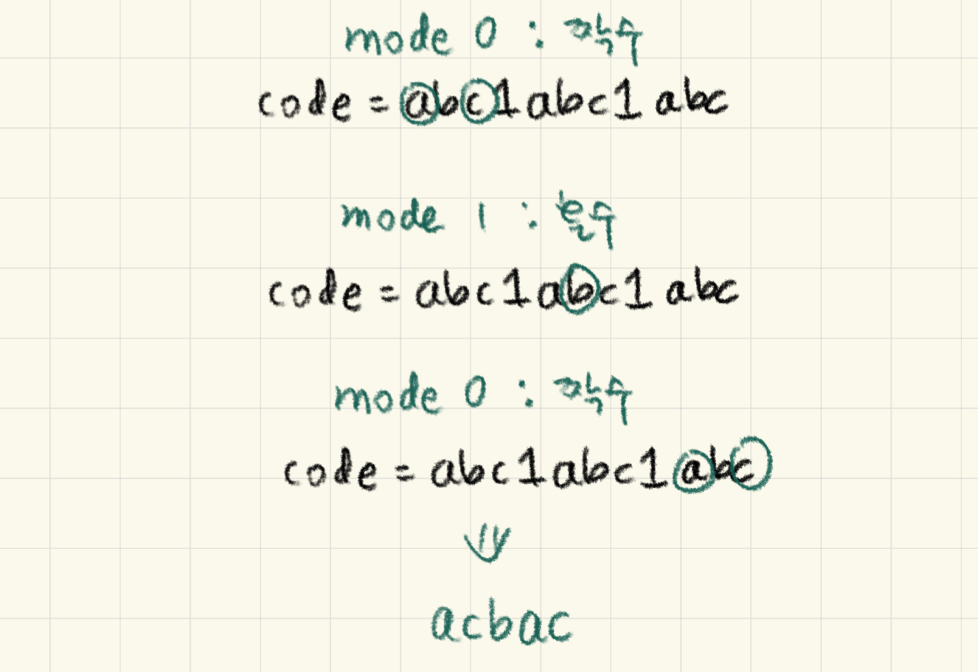 mode 0 : 짝수
code = abc1abc1abc
mode 1 : 홀수
code = abc1abc1abc
mode 0 : 짝수
code = abc1abc1abc
acbac